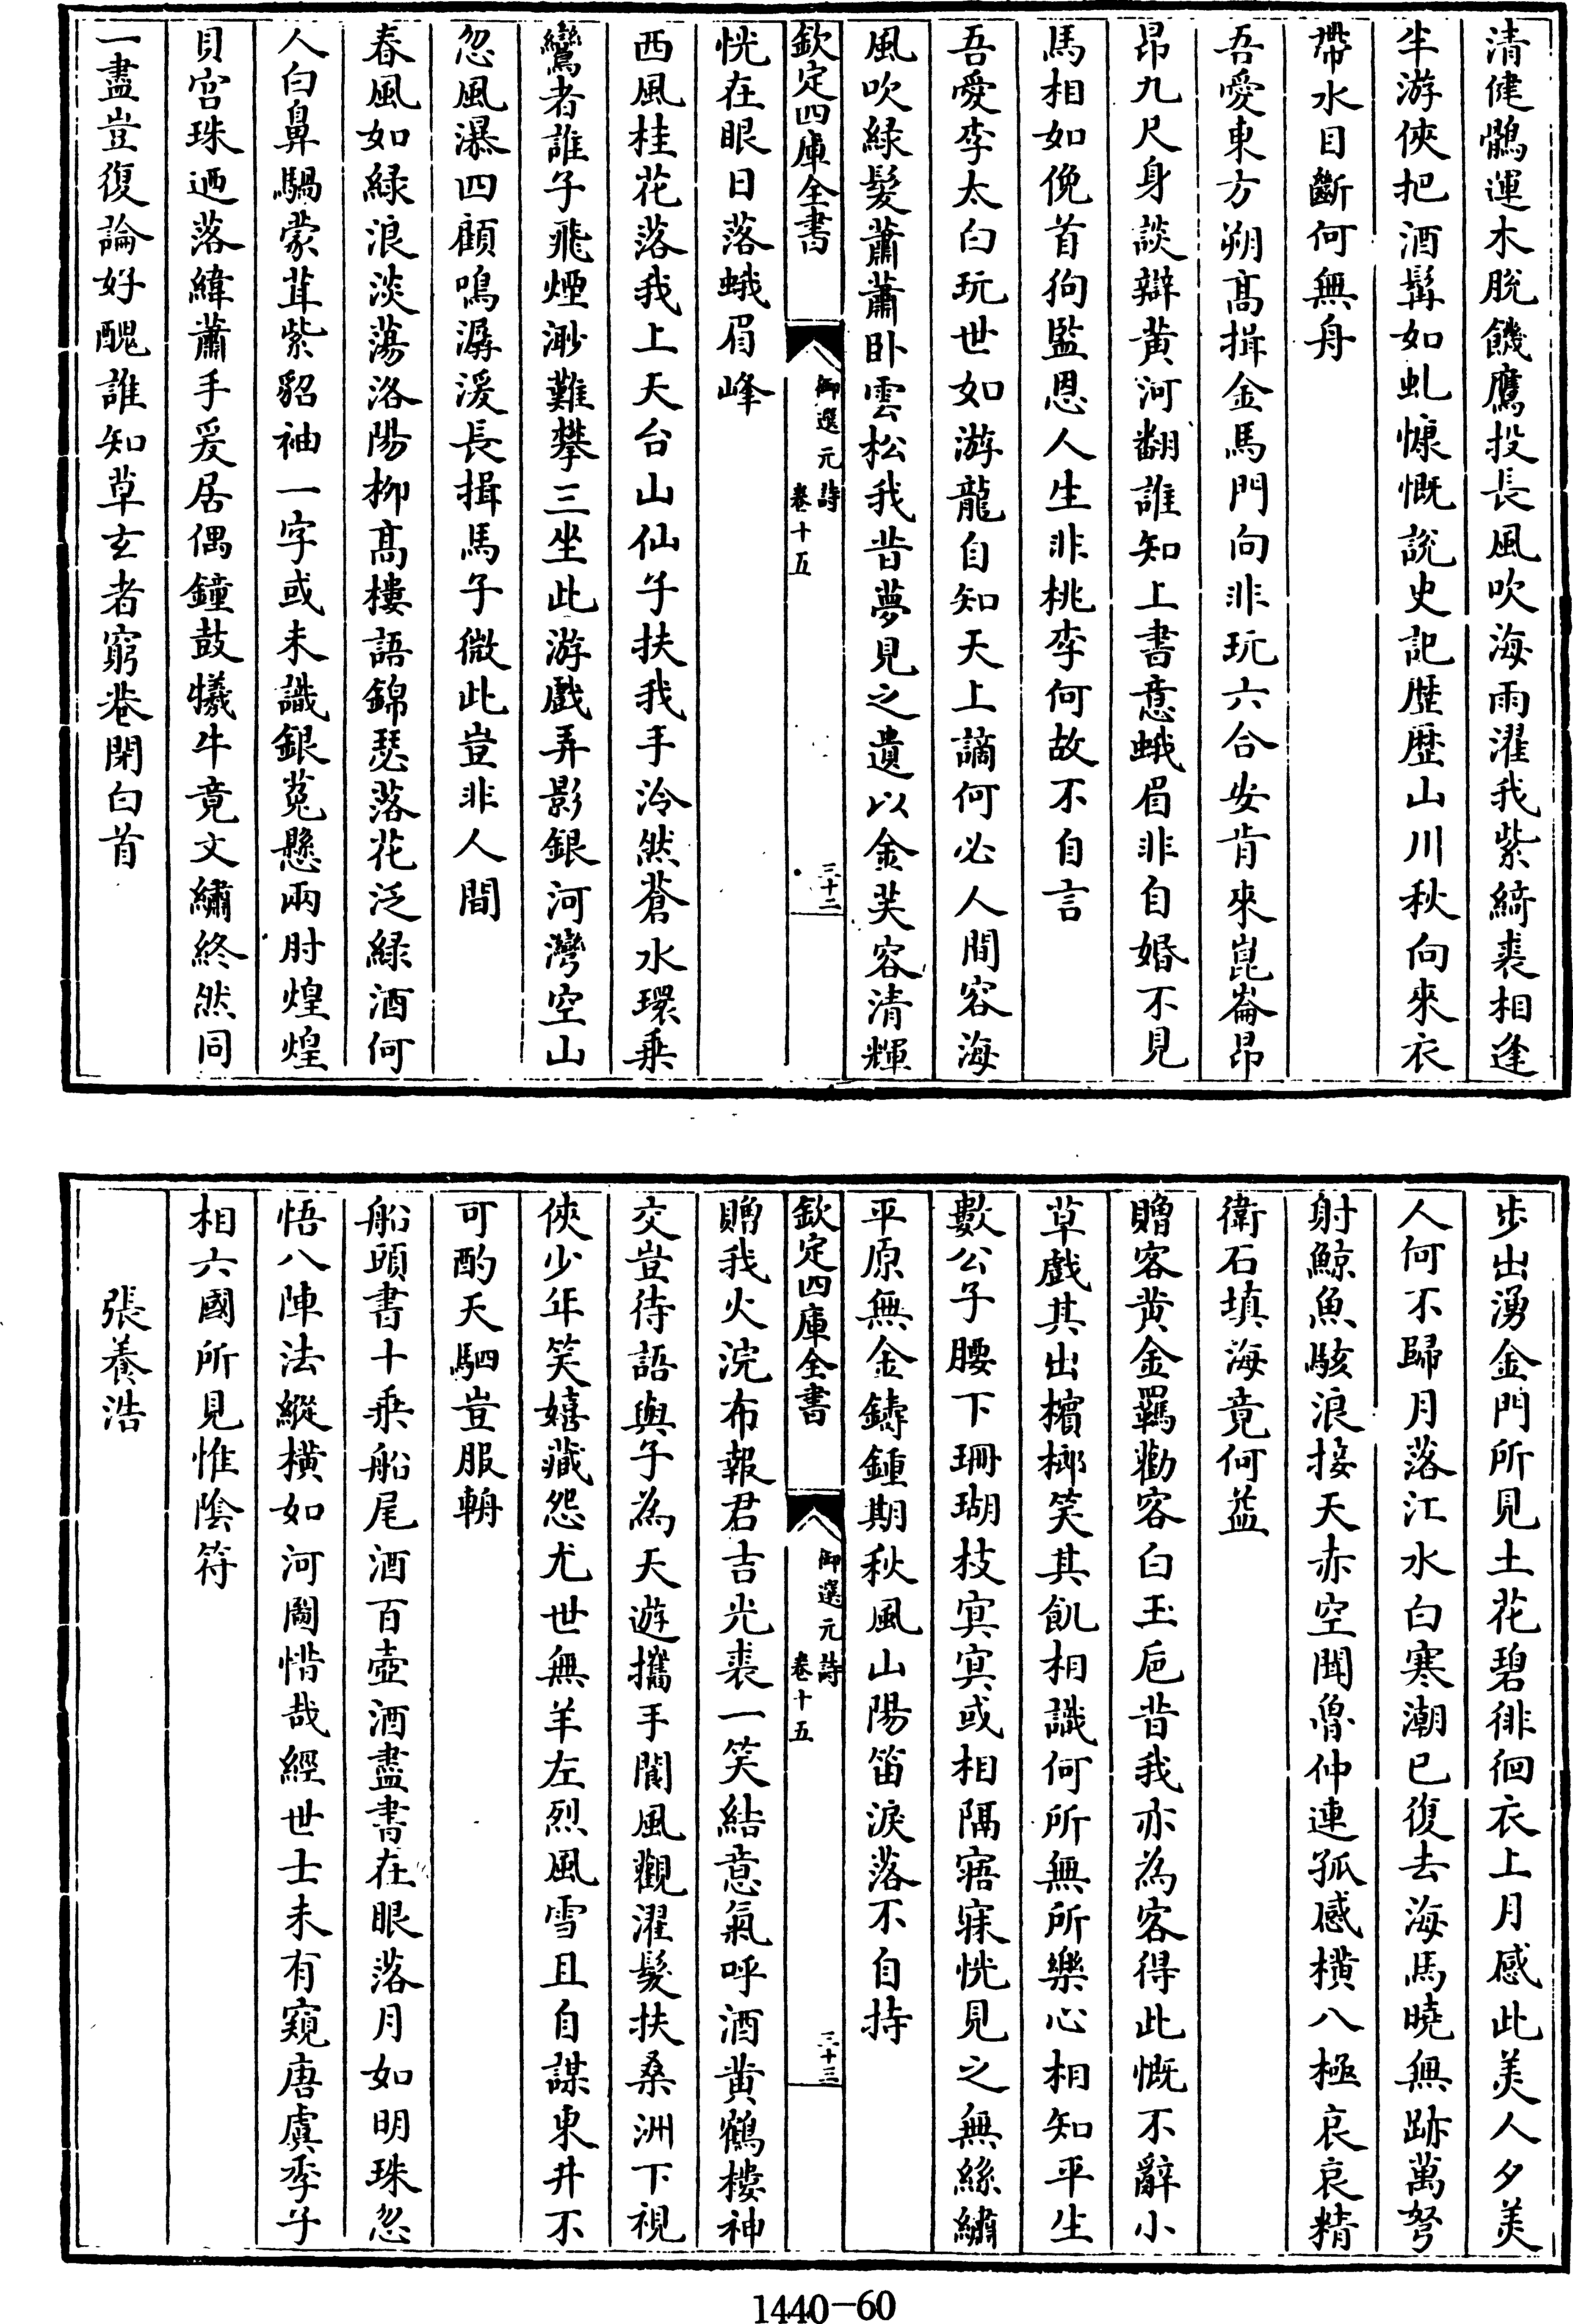 清健鶻運木脫饑鷹投長風吹海雨濯我紫綺裘相逢
半游俠把酒髯如虬慷慨說史記歷歷山川秋向來衣
帶水目斷何無舟
吾愛東方朔高揖金馬門向非玩六合安肯來崑崙昂
昂九尺身談辯黄河翻誰知上書意蛾眉非自婚不見
馬相如俛首狗監恩人生非桃李何故不自言
吾愛李太白玩世如游龍自知天上謫何必人間容海
風吹緑髮蕭蕭卧雲松我昔夢見之遺以金芙容清輝
欽定四庫全書
御選元詩
卷十五
三十二
恍在眼日落蛾眉峰
西風桂花落我上天台山仙子扶我手泠然蒼水環乗
鸞者誰子飛煙渺難攀三坐此游戲弄影銀河灣空山
忽風瀑四顧鳴潺湲長揖馬子微此豈非人間
春風如緑浪淡蕩洛陽柳高樓語錦瑟落花泛緑酒何
人白鼻騧蒙茸紫貂袖一字或未識銀菟懸兩肘煌煌
貝宮珠迺落緯蕭手爰居偶鐘鼓犧牛竟文繡終然同
一盡豈復論好醜誰知草玄者窮巷閉白首
步出湧金門所見土花碧徘徊衣上月感此美人夕美
人何不歸月落江水白寒潮已復去海馬曉無跡萬弩
射鯨魚駭浪接天赤空聞魯仲連孤感横八極哀哀精
衛石填海竟何益
贈客黄金羈勸客白玉巵昔我亦為客得此慨不辭小
草戲其出檳榔笑其飢相識何所無所樂心相知平生
數公子腰下珊瑚枝㝠㝠或相隔寤寐恍見之無絲繡
平原無金鑄鍾期秋風山陽笛淚落不自持
欽定四庫全書
御選元詩
卷十五
三十三
贈我火浣布報君吉光裘一笑結意氣呼酒黄鶴樓神
交豈待語與子為天遊攜手閬風觀濯髮扶桑洲下視
俠少年笑嬉藏怨尤世無羊左烈風雪且自謀東井不
可酌天駟豈服輈
船頭書十乗船尾酒百壺酒盡書在眼落月如明珠忽
悟八陣法縱橫如河圖惜哉經世士未有窺唐虞季子
相六國所見惟陰符
張養浩
1440-60